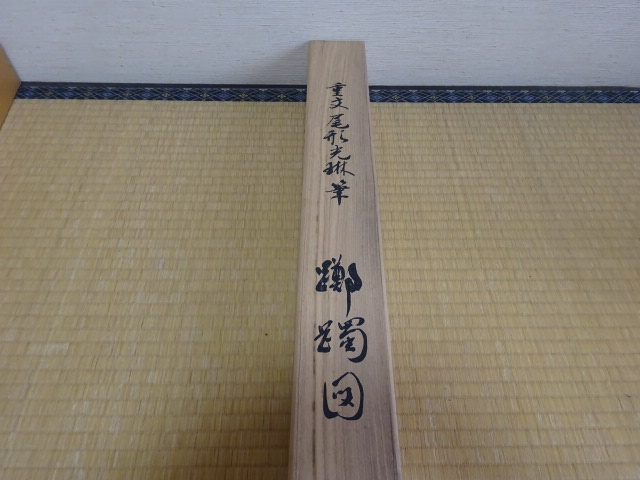 重文尾形光琳筆
躑躅図